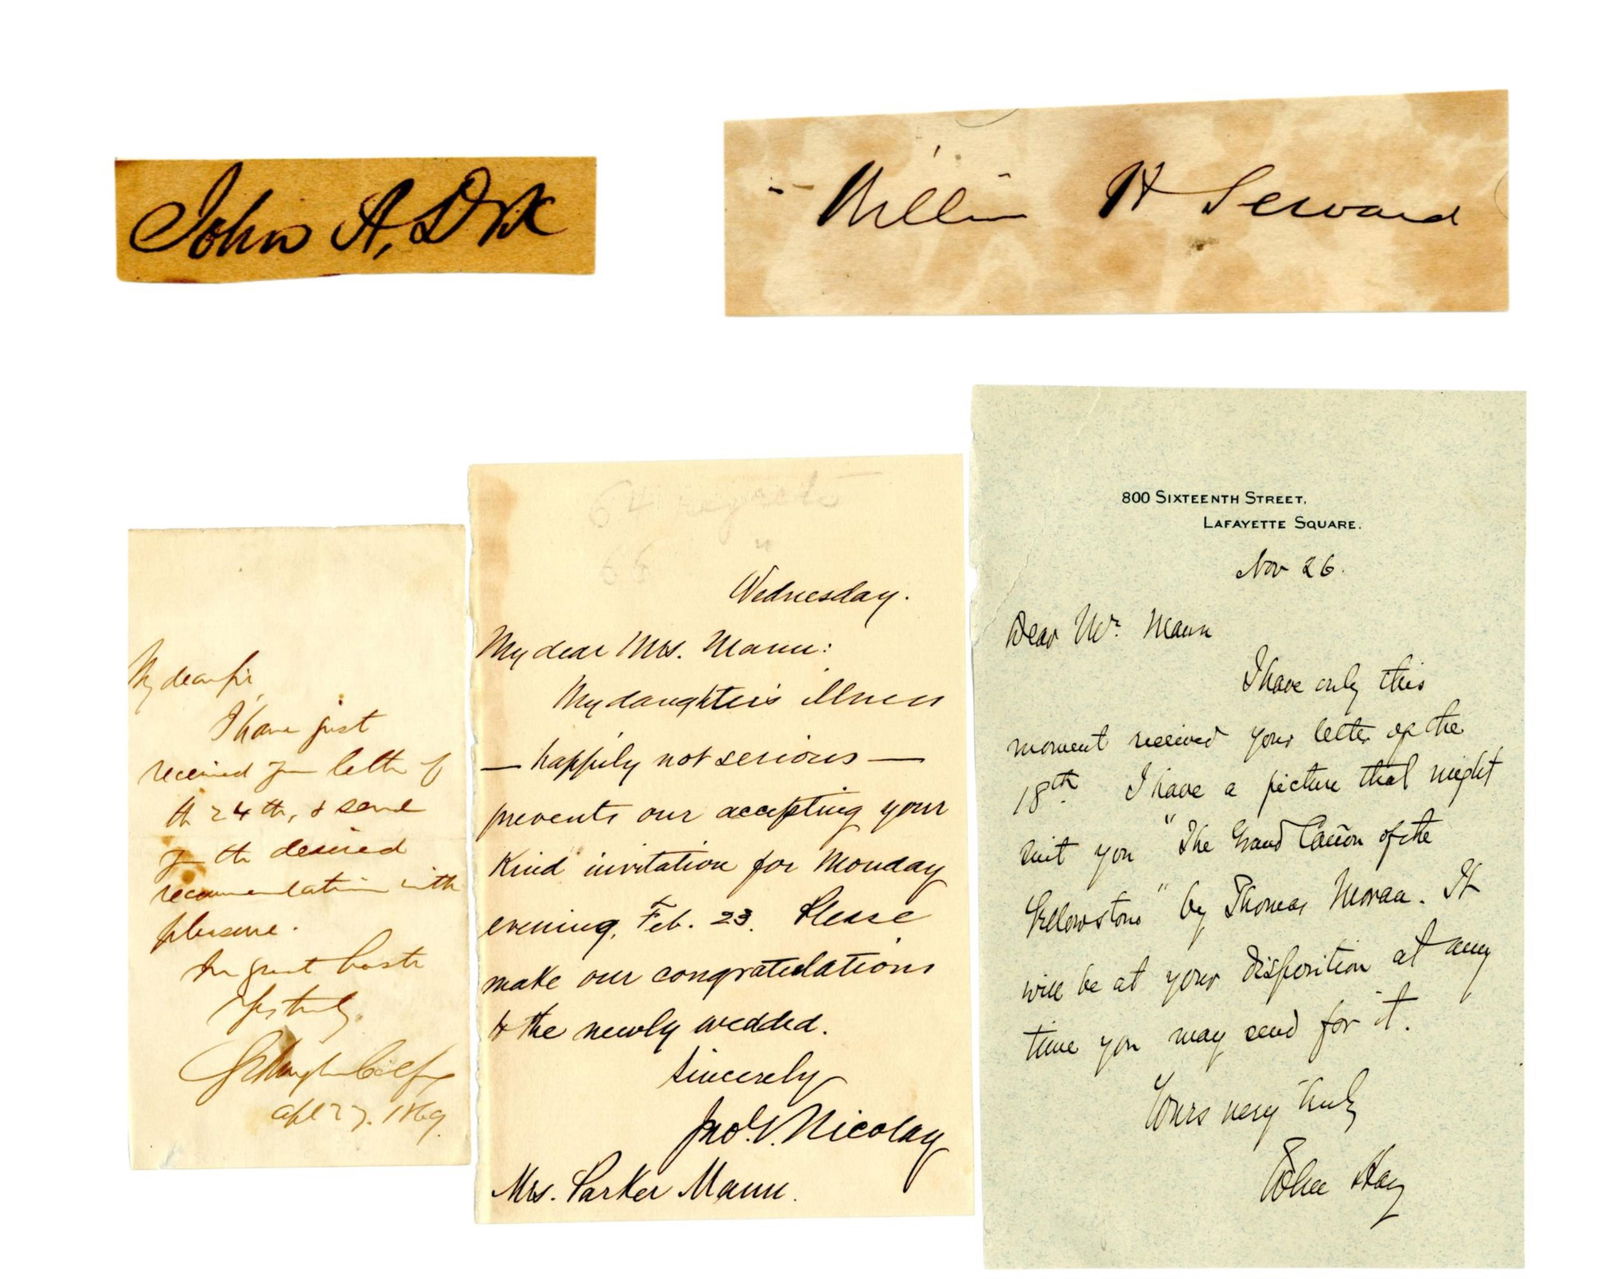 John A, Dix
William H Seward
My dear Sir,
I have just
received your letter of
the 24th, & send
you the desired
recommendation with
pleasure.
In great haste
Yrs truly,
Schuyler Colfax
Apl 27. 1869.
64 regrets
66
Wednesday.
My dear Mrs. Mann:
My daughter's illness
— happily not serious —
prevents our accepting your
kind invitation for Monday
evening, Feb. 23. Please
make our congratulations
to the newly wedded.
Sincerely
Jno. G. Nicolay
Mrs. Parker Mann.
800 SIXTEENTH STREET,
LAFAYETTE SQUARE.
Nov 26.
Dear Mr. Mann
I have only this
moment received your letter of the
18th. I have a picture that might
suit you "The Grand Cañon of the
Yellowstone" by Thomas Moran. It
will be at your disposition at any
time you may send for it.
Yours very truly
John Hay